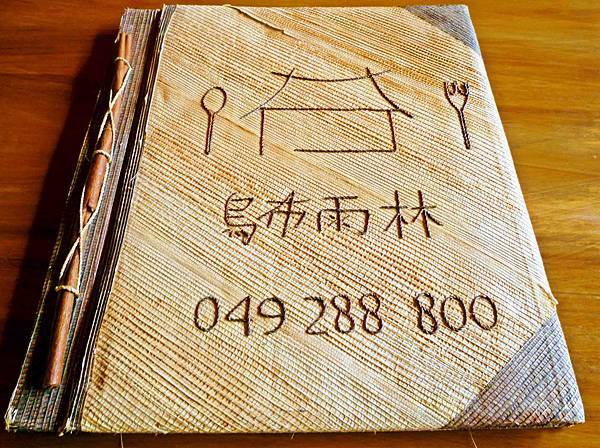 烏布雨林
049 288 800